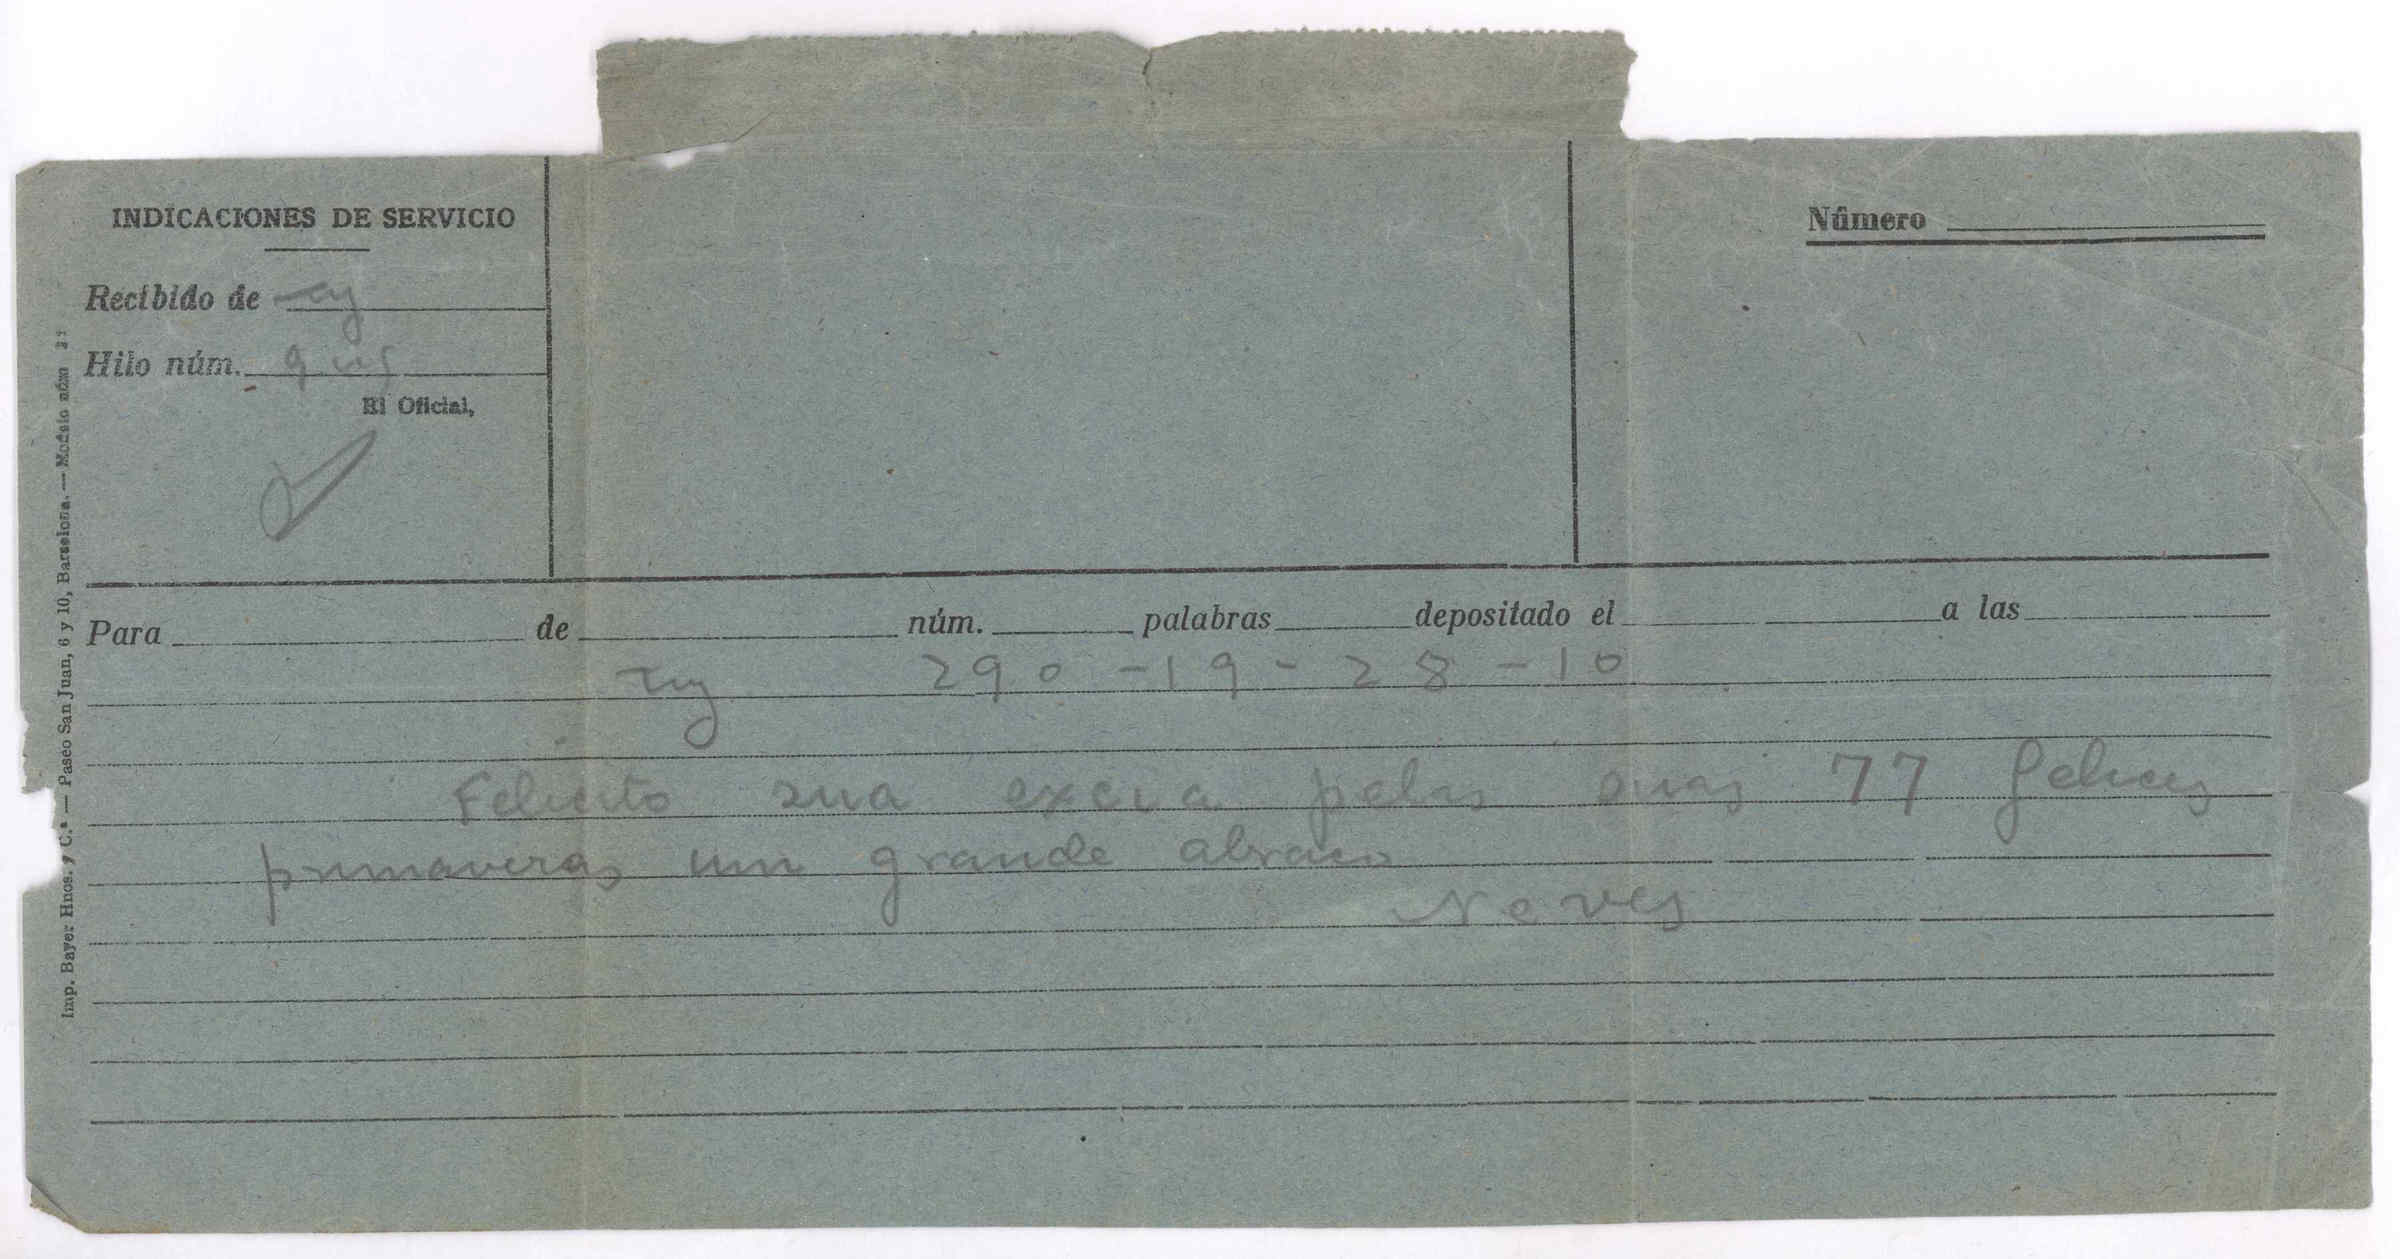 INDICACIONES DE SERVICIO
Número
Recibido de
Hilo núm.
El Oficial,
Para de núm. palabras depositado el a las
290-19-28-10
Felicito sua excia pelas suas 77 felices
primaveras um grande abraco
Neves
Imp. Bayer Hnos. y C.ª — Paseo San Juan, 6 y 10, Barcelona. — Modelo núm